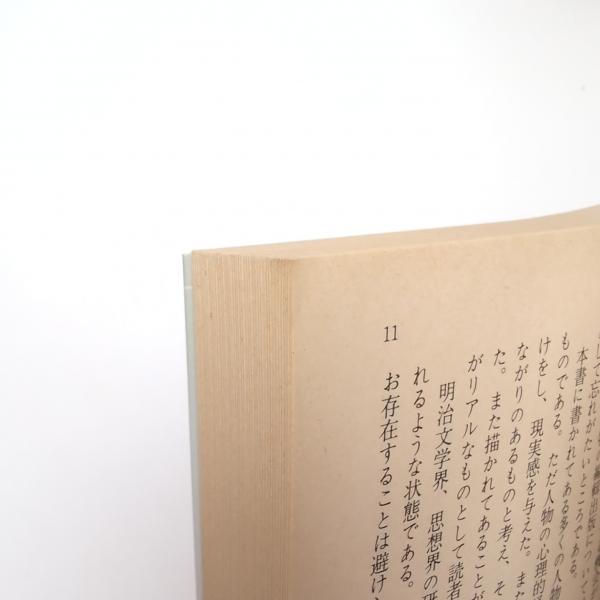 して忘れがたいところである。
本書に書かれてある多くの人物
ものである。ただ人物の心理的
けをし、現実感を与えた。また
ながりのあるものと考え、そ
た。また描かれてあることが
がリアルなものとして読者
明治文学界、思想界の
れるような状態である。
お存在することは避け
11